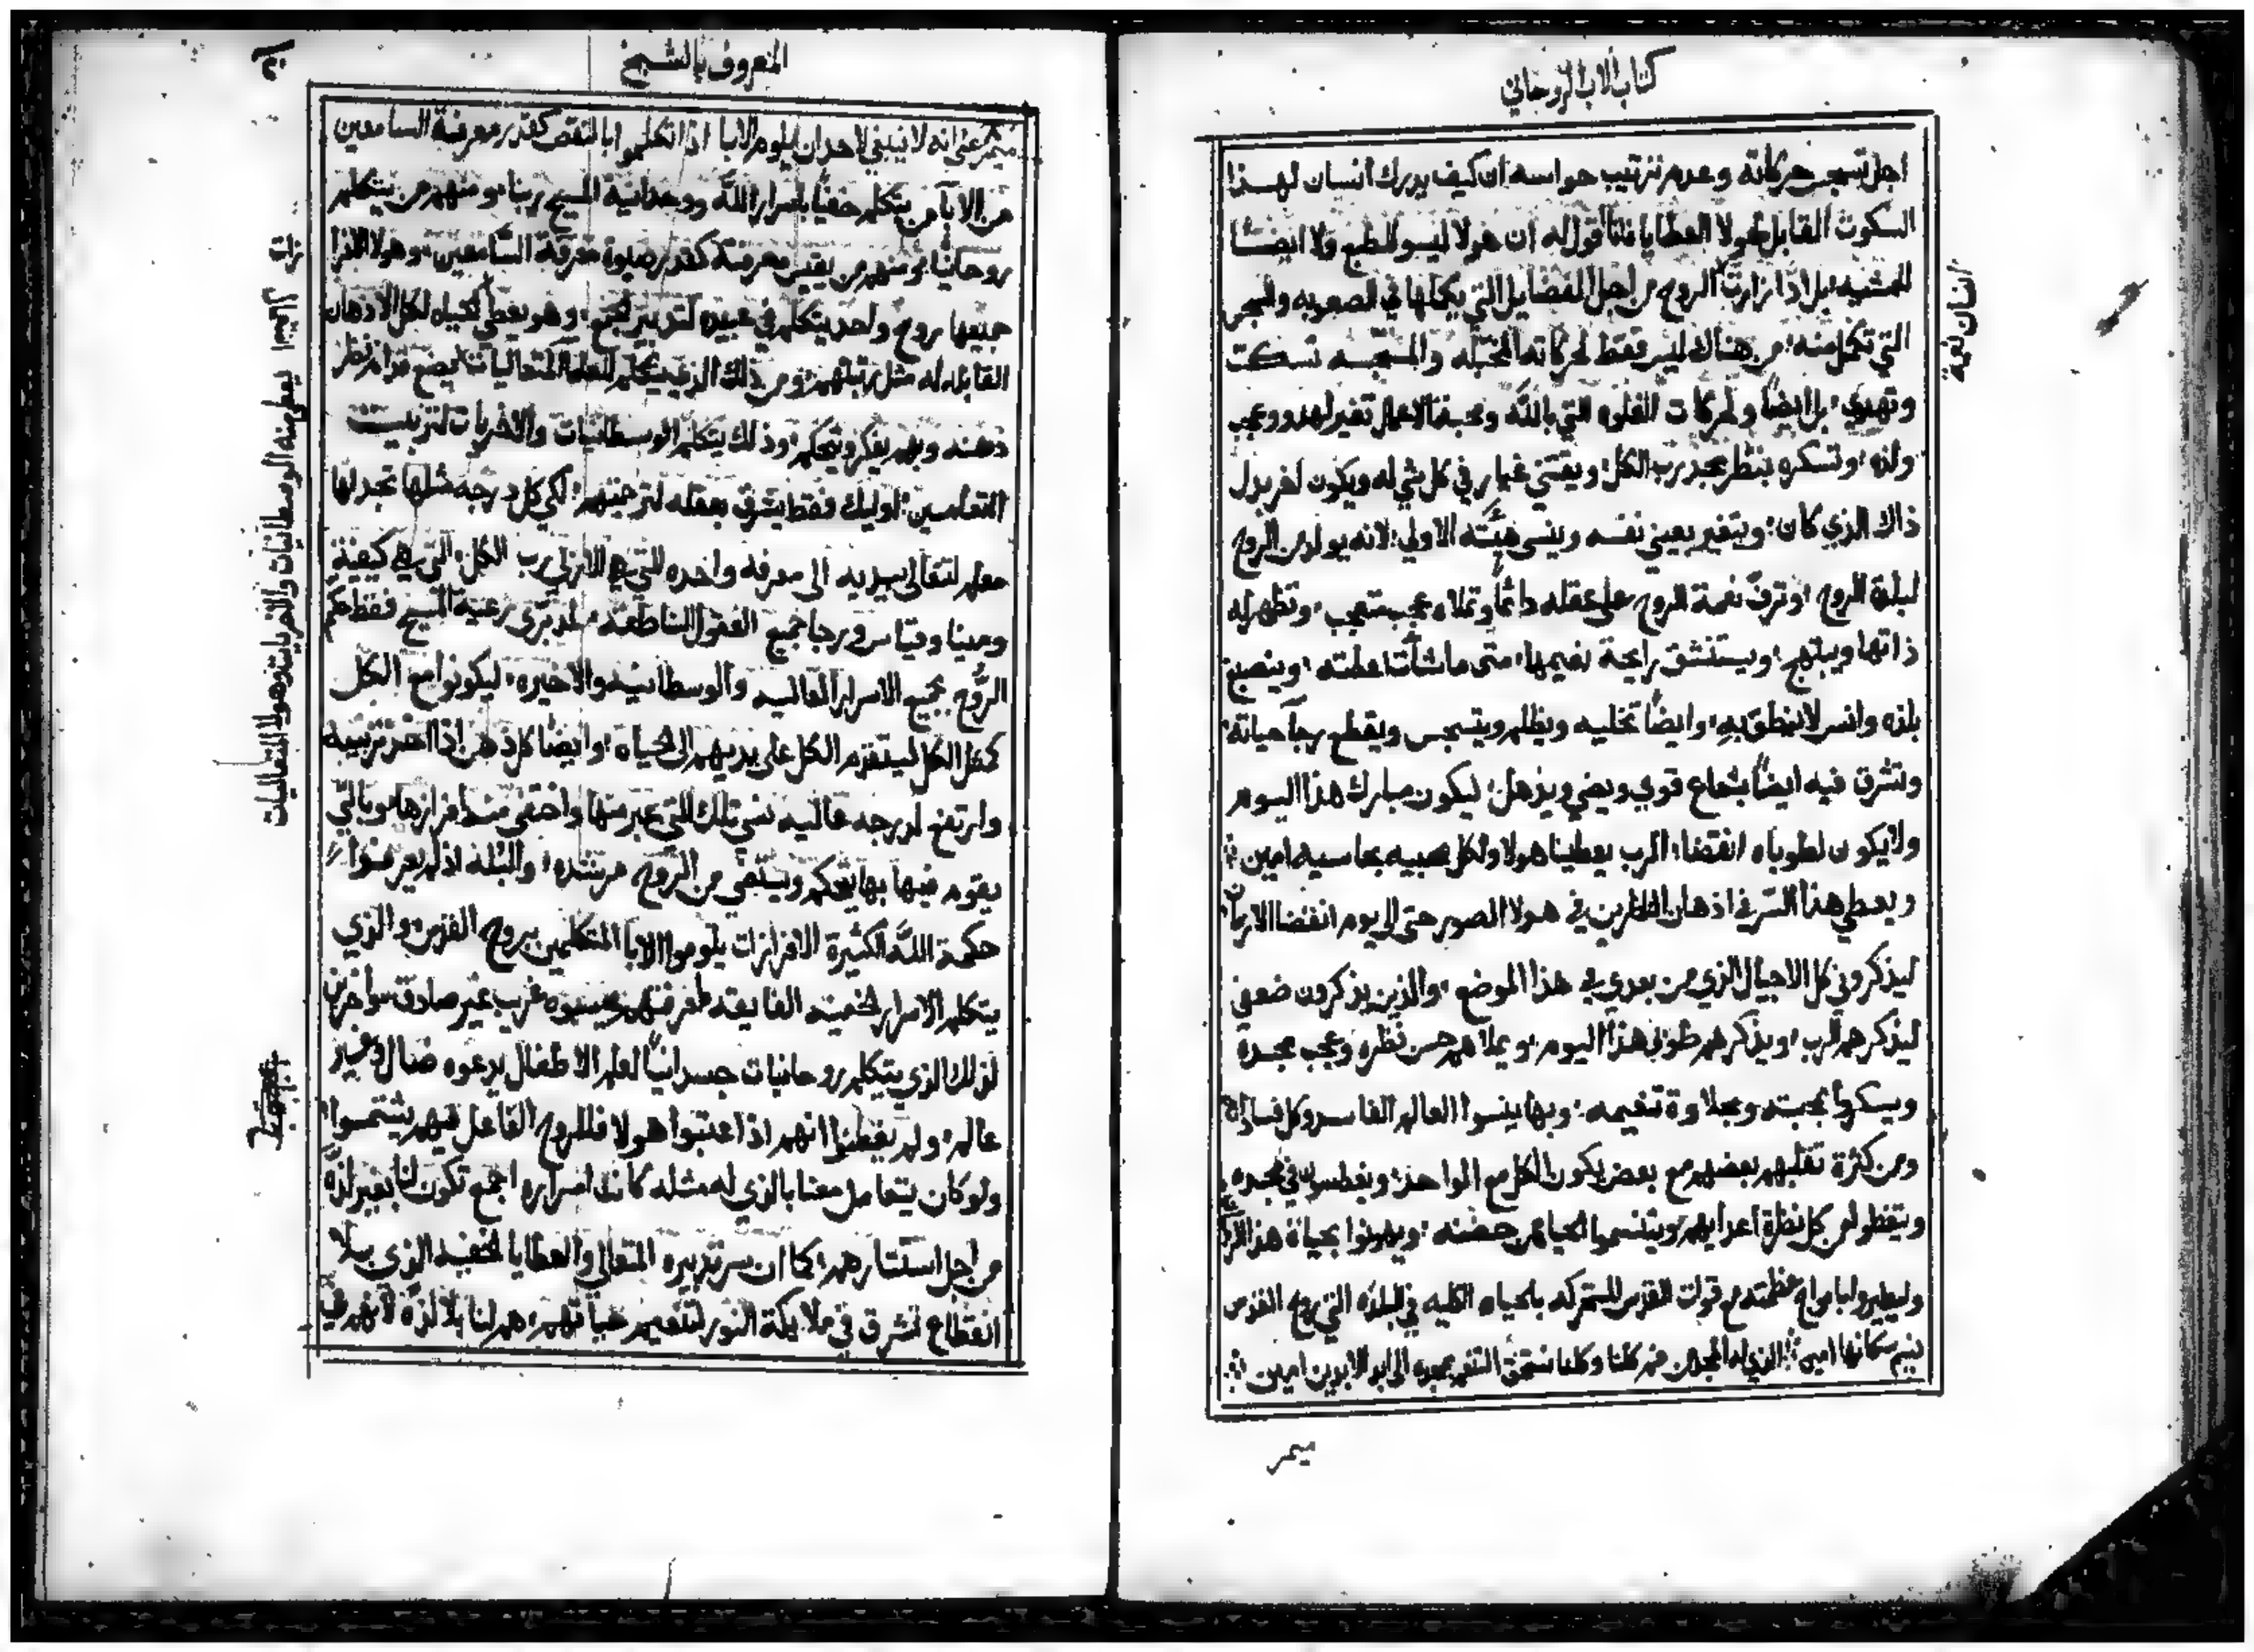 كتاب الاب الروحاني
اجل تسجس حركاته وعدم ترتيب حواسه ان كيف يدرك انسان لهذا
السكوت القابل لهولا العطايا فانا اقول له ان هولا ليسو للطبع ولا ايضا
للمشيه بل اذا زارت الروح من اجل الفضايل التي يكملها في الصعوبه والسجس
التي تكمل منه من هناك ليس فقط لحركاته المختبله والمسجسه تسكت
وتهدي بل ايضا ولحركات الغلوه التي بالله ومحبة الاعمال تغير لهدو وعجب
ولذه وتسكره بنظر مجد رب الكل ويقتني غيار في كل شي له ويكون اخر بدل
ذاك الذي كان ويتغير بعيني نفسه وينسى هيئته الاولي لانه يولد من الروح
لبلدة الروح وترف نعمة الروح على عقله دائما وتملاه عجب متعجب وتظهر له
ذاتها ويبتهج ويستنشق رايحة نعيمها متى ما شات اعلنته وينصبغ
بلذه وانس لا ينطق به وايضا تخليه ويظلم ويتسجس ويقطع رجا حياته
وتشرق فيه ايضا بشعاع قوي ويضي ويذهل ليكون مبارك هذا اليوم
ولا يكون لطوباه انقضا الرب يعطينا هولا ولكل محبيه بمحاسبه امين
ويعطي هذا السر في اذهان الناظرين في هولا الصور حتى الى يوم انقضا الازمان
ليذكروني كل الاجيال الذي من بعدي في هذا الموضع والذين يذكرون ضعفي
ليذكرهم الرب ويذكرهم طوبى هذا اليوم ويملاهم حسن نظره وعجب مجده
ويسكروا بمحبته وبحلاوة تنعيمه وبها ينسوا العالم الفاسد وكل فساداته
ومن كثرة تقلبهم بعضهم مع بعض يكون الكل مع الواحد ويغطسون في مجده
ويتغطو من كل نظرة اعدايهم ويتنسموا الحياه من حضنه ويهدوا بحياة هذا
وليطيرو بامواج عظمته مع قوات القدس المتحركه بالحياه الكليه في البلده التي روح القدس
ينيم سكانها امين الذي له المجد من كلنا وكلنا نستحق التنعم بمجده الى ابد الابدين امين
ميمر
المعروف بالشيخ
ميمر على انه لا ينبغي لاحد ان يلوم الابا اذا تكلموا بالنقص كقدر معرفة السامعين
من الابا من يتكلم خفيا باسرار الله ووحدانية المسيح ربنا ومنهم من يتكلم
روحانيا ومنهم من يقيس معرفته كقدر معرفة السامعين وهولا الابا
جميعها بروح واحد يتكلم في عبيده لتدبير الجميع وهو يعطي الحياه لكل الاذهان
القابله له مثل رتبتهم ومن ذلك الذي يتكلم للعلما المتعاليات يضع قدام نظر
ذهنه وبهم يفكر ويتحكم وذلك يتكلم الوسطانيات والاخريات لتربيت
التعلمين اوليك فقط يشرق بعقله لترجيتهم لكي كل درجه مثلها تجد لها
معلم لتعالى يهديه الى معرفه واحده التي هي الازلي رب الكل التي هي كيفية
ومينا وقياس ورجا جميع العقول الناطقه ليلا ترى رعية المسيح فقط حكم
الروح بجميع الاسرار العاليه والوسطانيه والاخيره ليكونوا مع الكل
كمثل الكل ليتقدم الكل على يديهم الى الحياه وايضا كل ذهن اذا اخذ تربيه
وارتفع لدرجه عاليه نسي تلك التي عبر منها واختفى منه افرازها وبالتي
يقوم فيها بها يتحكم ويستقي من الروح مرشده والبله اذ لم يعرفوا
حكمة الله الكثيرة الافرازات يلوموا الابا المتكلمين بروح القدس والذي
يتكلم الاسرار الخفيه الفايقه لمعرفتهم يحسبوه غريب غير صادق سواخرين
لذلك الذي يتكلم روحانيات جسدانيا لعلم الاطفال يدعوه ضال وغير
عالم ولم يفطنوا انهم اذا عتبوا هولا فللروح الفاعل فيهم يشتموا
ولو كان يتعامل معنا بالذي له مثله كانت اسراره اجمع تكون لنا بغير لذه
من اجل استتارهم كما ان سر تدبيره المتعالي والعطايا الخفيه الذي بلا
انقطاع تشرق في ملايكة النور لتنعيم حياتهم هم لنا بلا لذة لانهم في
يعطي منه الوسطانيات والاخريات وهولا المتعاليات